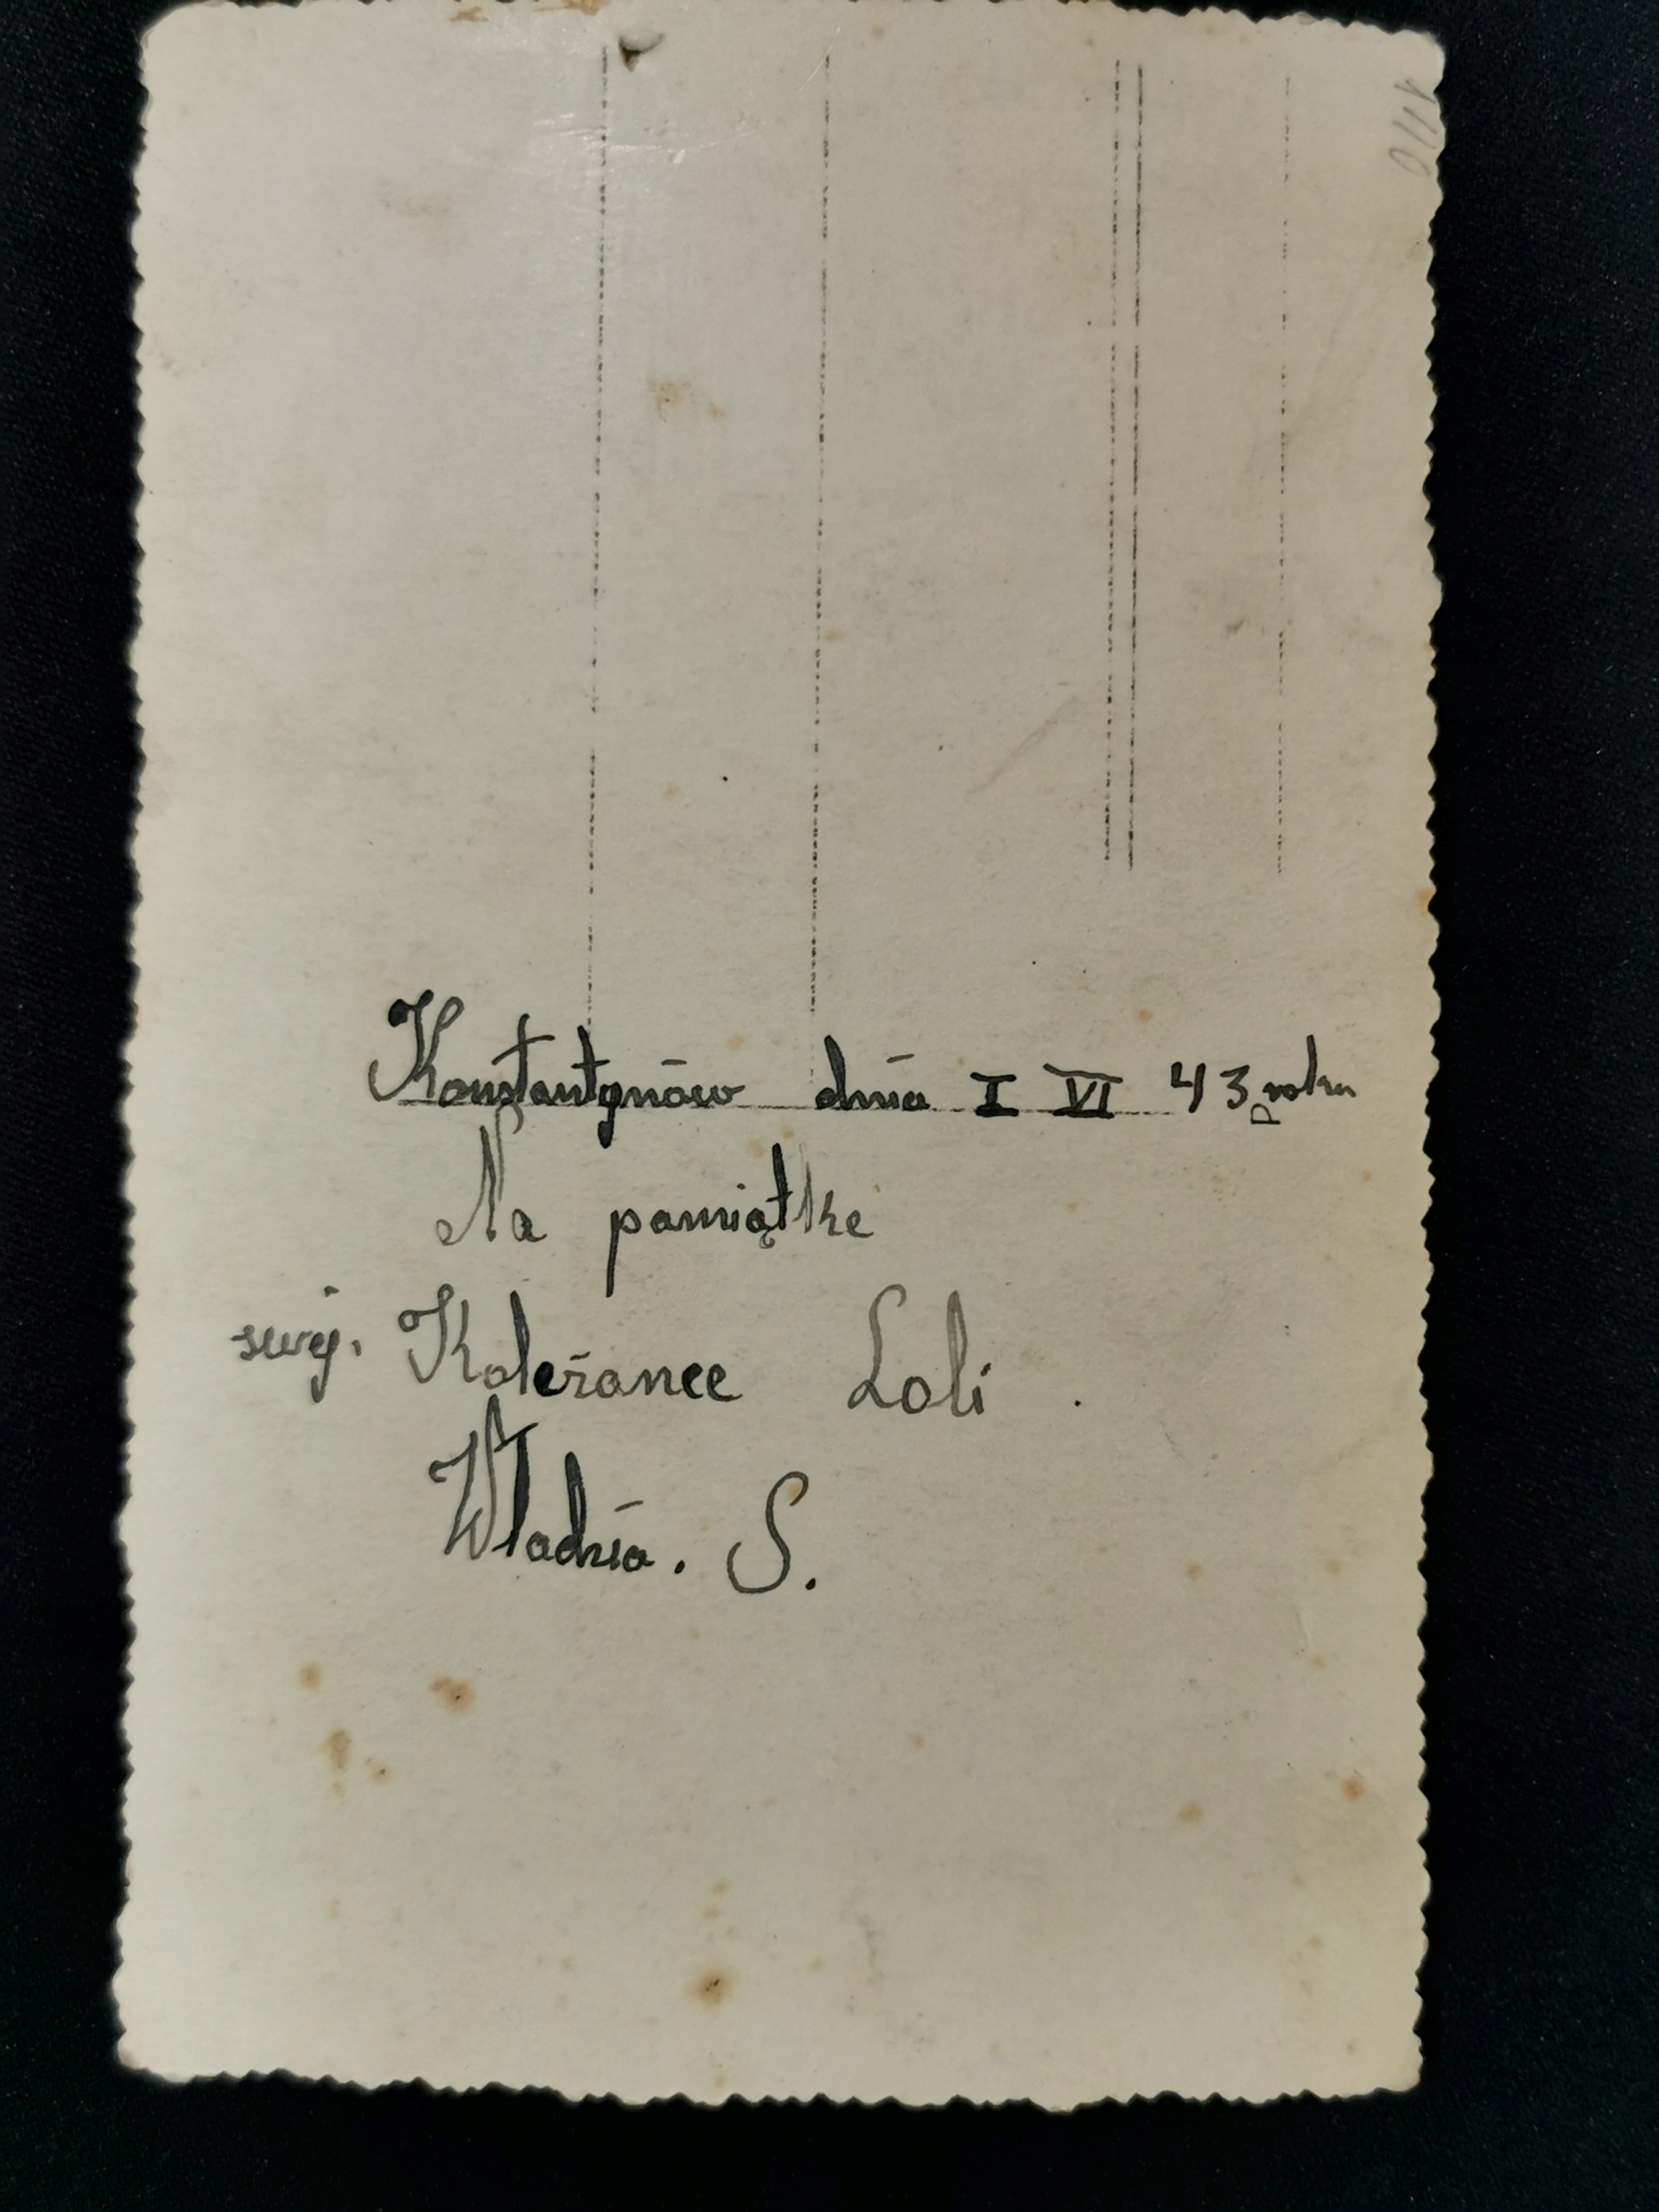 Konstantynów dnia I VI 43 roku
Na pamiątke
swej. Koleżance Loli.
Władzia. S.